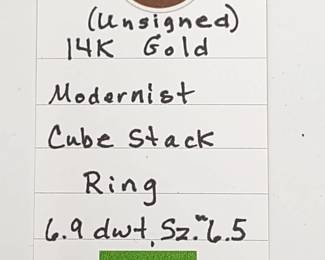 (Unsigned)
14K Gold
Modernist
Cube Stack
Ring
6.9 dwt, Sz. "6.5